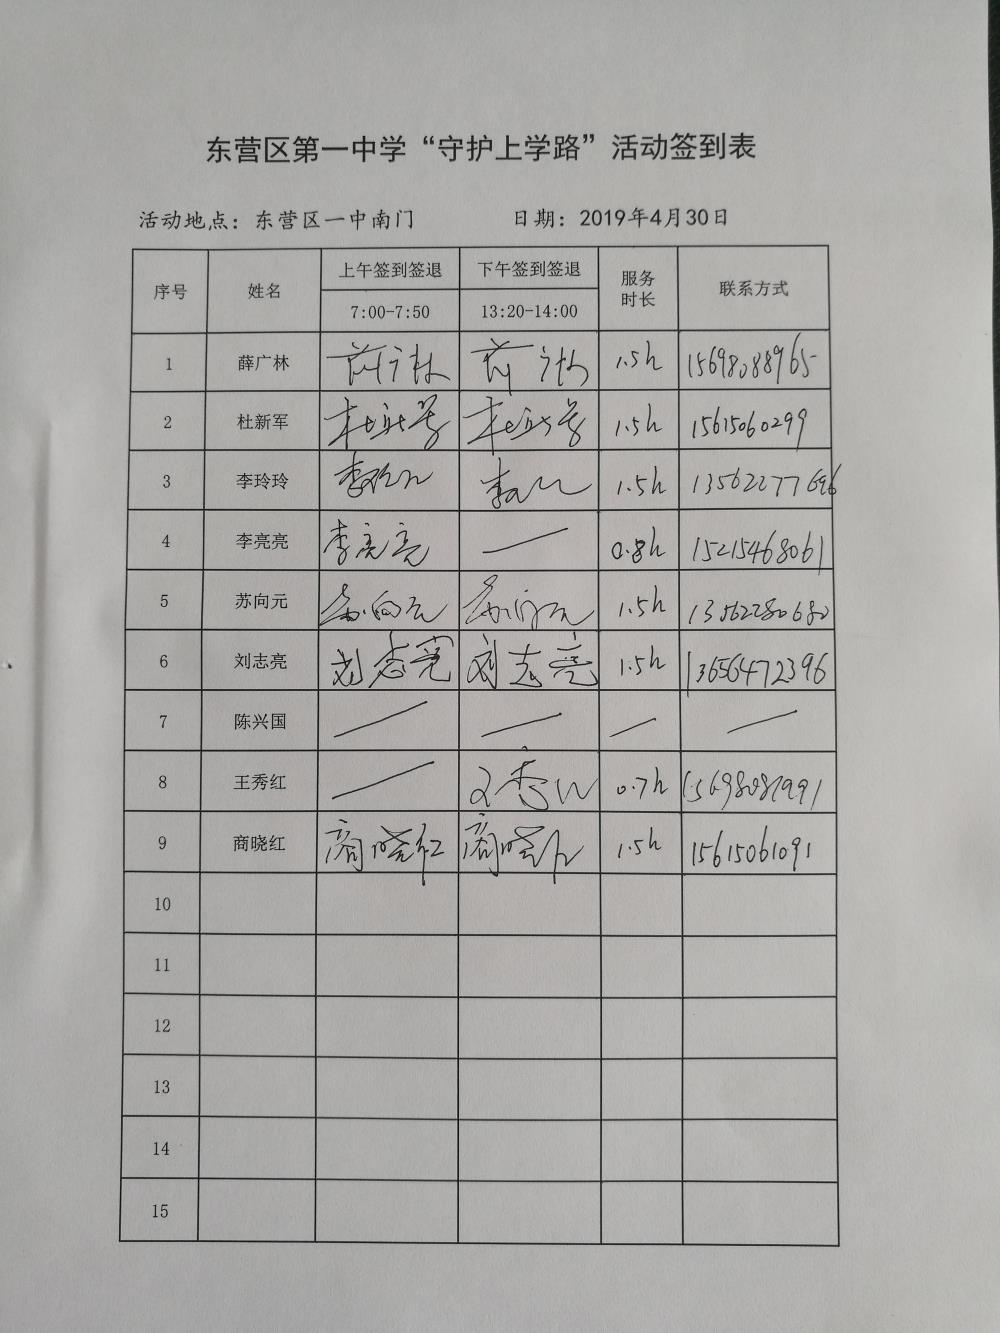 东营区第一中学“守护上学路”活动签到表
活动地点：东营区一中南门 日期：2019年4月30日
序号 姓名 上午签到签退 下午签到签退 服务时长 联系方式
7:00-7:50 13:20-14:00
1 薛广林 薛广林 薛广林 1.5h 15698088965
2 杜新军 杜新军 杜新军 1.5h 15615060299
3 李玲玲 李玲玲 李玲玲 1.5h 13562277696
4 李亮亮 李亮亮 — 0.8h 15215468061
5 苏向元 苏向元 苏向元 1.5h 13562280680
6 刘志亮 刘志亮 刘志亮 1.5h 13656472396
7 陈兴国 — — — —
8 王秀红 — 王秀红 0.7h 15698087991
9 商晓红 商晓红 商晓红 1.5h 15615061091
10
11
12
13
14
15